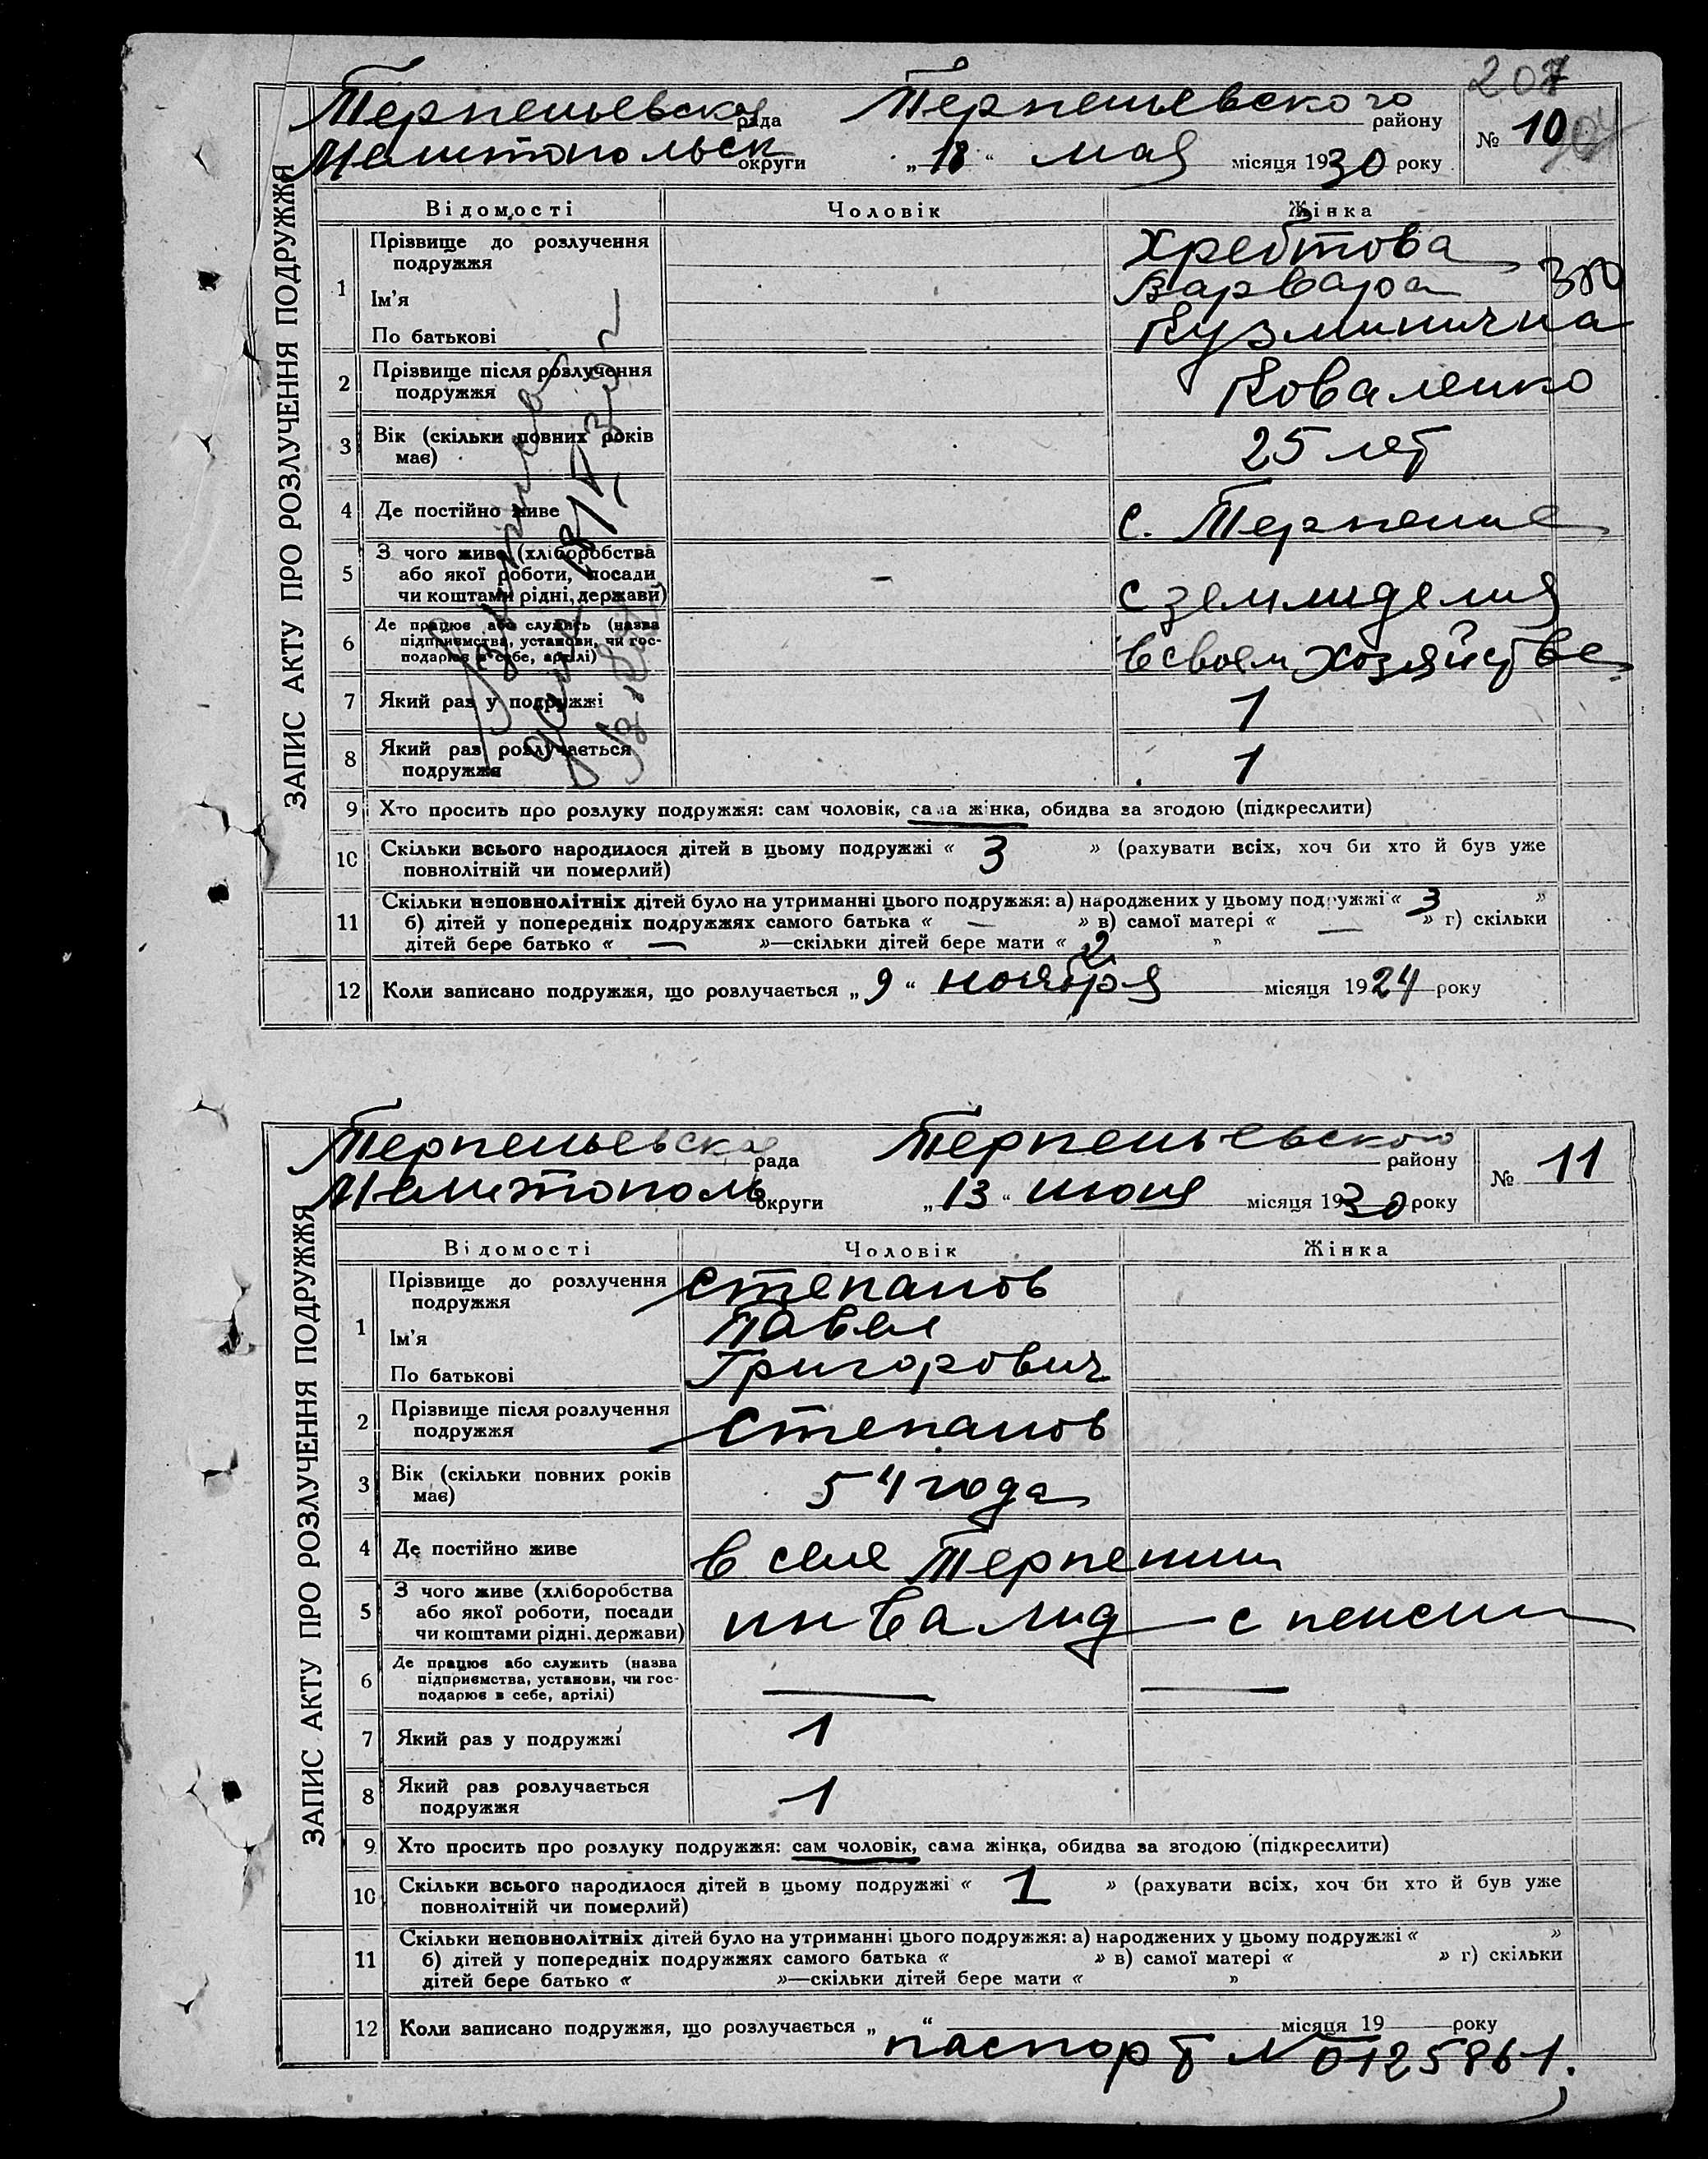 207
Терпеньевская рада Терпеньевского району № 10
Мелитопольск округи „18“ мая місяця 1930 року
ЗАПИС АКТУ ПРО РОЗЛУЧЕННЯ ПОДРУЖЖЯ
Відомості Чоловік Жінка
1 Прізвище до розлучення подружжя Хребтова
Ім'я Варвара
По батькові Кузминична
2 Прізвище після розлучення подружжя Коваленко
3 Вік (скільки повних років має) 25 лет
4 Де постійно живе с. Терпение
5 З чого живе (хліборобства
або якої роботи, посади
чи коштами рідні, держави) с земледелия
6 Де працює або служить (назва
підприємства, установи, чи гос-
подарює в себе, артілі) в своем хозяйстве
7 Який раз у подружжі 1
8 Який раз розлучається подружжя 1
9 Хто просить про розлуку подружжя: сам чоловік, сама жінка, обидва за згодою (підкреслити)
10 Скільки всього народилося дітей в цьому подружжі « 3 » (рахувати всіх, хоч би хто й був уже
повнолітній чи померлий)
11 Скільки неповнолітніх дітей було на утриманні цього подружжя: а) народжених у цьому подружжі « 3 »
б) дітей у попередніх подружжях самого батька « — » в) самої матері « — » г) скільки
дітей бере батько « — »—скільки дітей бере мати « 2 »
12 Коли записано подружжя, що розлучається „9“ ноября місяця 1924 року
Терпеньевская рада Терпеньевского району № 11
Мелитополь округи „13“ июня місяця 1930 року
ЗАПИС АКТУ ПРО РОЗЛУЧЕННЯ ПОДРУЖЖЯ
Відомості Чоловік Жінка
1 Прізвище до розлучення подружжя Степанов
Ім'я Павел
По батькові Григорович
2 Прізвище після розлучення подружжя Степанов
3 Вік (скільки повних років має) 54 года
4 Де постійно живе в селе Терпении
5 З чого живе (хліборобства
або якої роботи, посади
чи коштами рідні, держави) инвалид — с пенсии
6 Де працює або служить (назва
підприємства, установи, чи гос-
подарює в себе, артілі) — —
7 Який раз у подружжі 1
8 Який раз розлучається подружжя 1
9 Хто просить про розлуку подружжя: сам чоловік, сама жінка, обидва за згодою (підкреслити)
10 Скільки всього народилося дітей в цьому подружжі « 1 » (рахувати всіх, хоч би хто й був уже
повнолітній чи померлий)
11 Скільки неповнолітніх дітей було на утриманні цього подружжя: а) народжених у цьому подружжі « »
б) дітей у попередніх подружжях самого батька « » в) самої матері « » г) скільки
дітей бере батько « »—скільки дітей бере мати « »
12 Коли записано подружжя, що розлучається „ “ місяця 19 року
паспорт № 0125861.